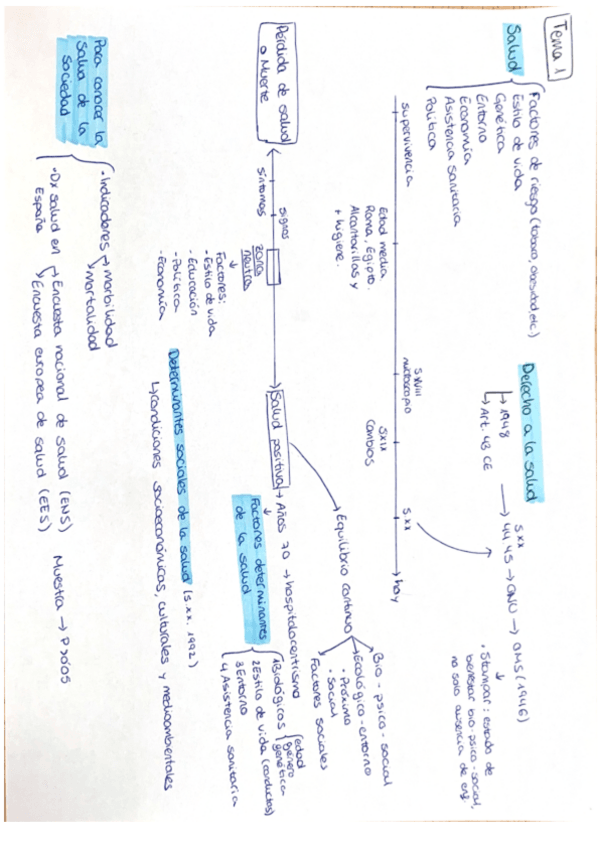 Tema 1
Salud
Factores de riesgo (tabaco, obesidad, etc.)
Estilo de vida
Genética
Entorno
Economía
Asistencia sanitaria
Política
Derecho a la salud
→ 1948
→ Art. 43 CE
s.xx
44, 45 → ONU → OMS (1946)
• Stampar: estado de
bienestar bio-psico-social,
no solo ausencia de enf.
supervivencia
Edad media.
Roma, Egipto.
Alcantarillas y
+ higiene.
S.XVIII
microscopio
S.XIX
Cambios
S.XX
hoy
Pérdida de salud
o Muerte
síntomas
signos
zona
neutra
Factores:
- Estilo de vida
- Educación
- Política
- Economía
Salud positiva
→ Equilibrio continuo
Bio-psico-social
Ecológico-entorno
• Próximo
• Social
Factores sociales
→ Años 70 → hospitalocentrismo
Factores determinantes
de la salud
1 Biológicos
edad
género
genética
2 Estilo de vida (conductas)
3 Entorno
4 Asistencia sanitaria
Determinantes sociales de la salud (s.xx. 1992)
↳ condiciones socioeconómicas, culturales y medioambientales
Para conocer la
Salud de la
Sociedad
• Indicadores → Morbilidad
Mortalidad
• Dx salud en
España
Encuesta nacional de salud (ENS)
Encuesta europea de salud (EES)
Muestra →